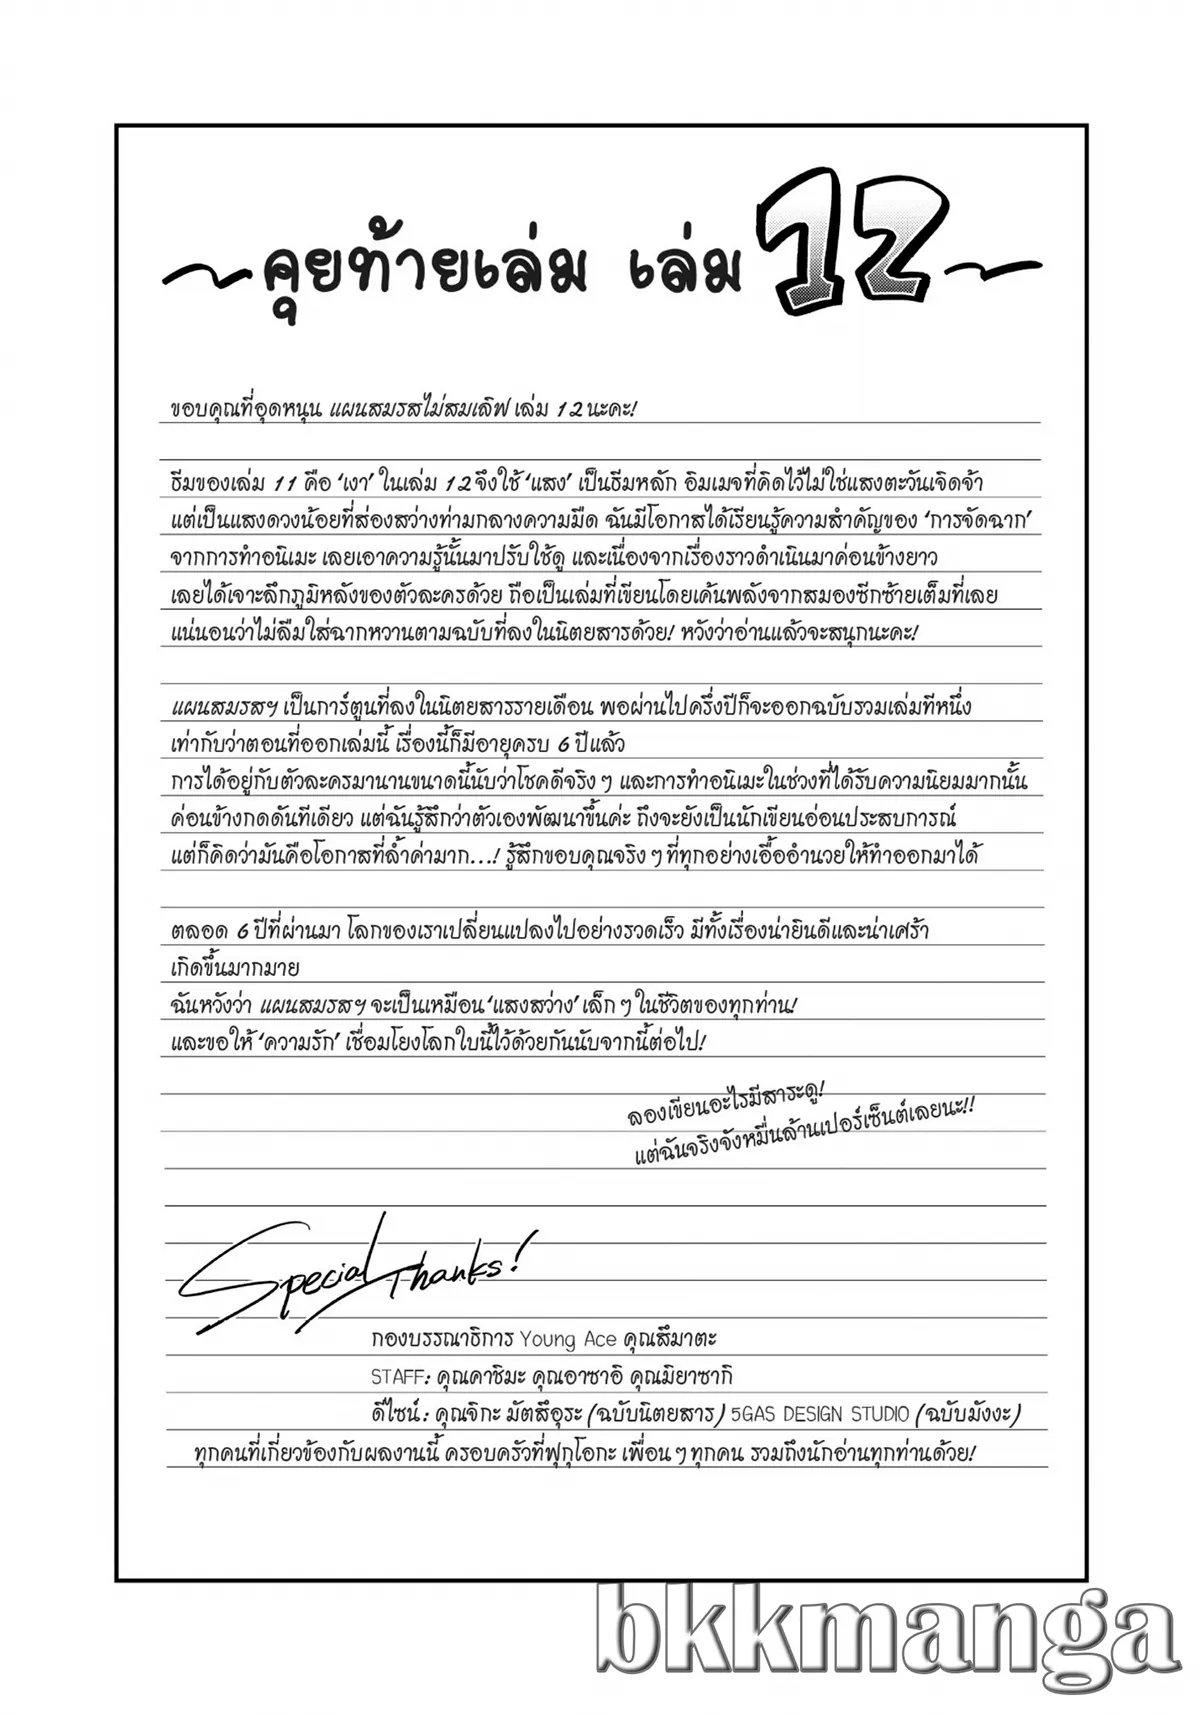 ~คุยท้ายเล่ม เล่ม 12~
ขอบคุณที่อุดหนุน แผนสมรสไม่สมเลิฟ เล่ม 12 นะคะ!
ธีมของเล่ม 11 คือ ‘เงา’ ในเล่ม 12 จึงใช้ ‘แสง’ เป็นธีมหลัก อิมเมจที่คิดไว้ไม่ใช่แสงตะวันเจิดจ้า
แต่เป็นแสงดวงน้อยที่ส่องสว่างท่ามกลางความมืด ฉันมีโอกาสได้เรียนรู้ความสำคัญของ ‘การจัดฉาก’
จากการทำอนิเมะ เลยเอาความรู้นั้นมาปรับใช้ดู และเนื่องจากเรื่องราวดำเนินมาค่อนข้างยาว
เลยได้เจาะลึกภูมิหลังของตัวละครด้วย ถือเป็นเล่มที่เขียนโดยเค้นพลังจากสมองซีกซ้ายเต็มที่เลย
แน่นอนว่าไม่ลืมใส่ฉากหวานตามฉบับที่ลงในนิตยสารด้วย! หวังว่าอ่านแล้วจะสนุกนะคะ!
แผนสมรสฯ เป็นการ์ตูนที่ลงในนิตยสารรายเดือน พอผ่านไปครึ่งปีก็จะออกฉบับรวมเล่มทีหนึ่ง
เท่ากับว่าตอนที่ออกเล่มนี้ เรื่องนี้ก็มีอายุครบ 6 ปีแล้ว
การได้อยู่กับตัวละครมานานขนาดนี้นับว่าโชคดีจริงๆ และการทำอนิเมะในช่วงที่ได้รับความนิยมมากนั้น
ค่อนข้างกดดันทีเดียว แต่ฉันรู้สึกว่าตัวเองพัฒนาขึ้นค่ะ ถึงจะยังเป็นนักเขียนอ่อนประสบการณ์
แต่ก็คิดว่ามันคือโอกาสที่ล้ำค่ามาก...! รู้สึกขอบคุณจริงๆ ที่ทุกอย่างเอื้ออำนวยให้ทำออกมาได้
ตลอด 6 ปีที่ผ่านมา โลกของเราเปลี่ยนแปลงไปอย่างรวดเร็ว มีทั้งเรื่องน่ายินดีและน่าเศร้า
เกิดขึ้นมากมาย
ฉันหวังว่า แผนสมรสฯ จะเป็นเหมือน ‘แสงสว่าง’ เล็กๆ ในชีวิตของทุกท่าน!
และขอให้ ‘ความรัก’ เชื่อมโยงโลกใบนี้ไว้ด้วยกันนับจากนี้ต่อไป!
ลองเขียนอะไรมีสาระดู!
แต่ฉันจริงจังหมื่นล้านเปอร์เซ็นต์เลยนะ!!
Special Thanks!
กองบรรณาธิการ Young Ace คุณสึมาตะ
STAFF: คุณคาชิมะ คุณอาซาอิ คุณมิยาซากิ
ดีไซน์: คุณจิกะ มัตสึอุระ (ฉบับนิตยสาร) 5GAS DESIGN STUDIO (ฉบับมังงะ)
ทุกคนที่เกี่ยวข้องกับผลงานนี้ ครอบครัวที่ฟุกุโอกะ เพื่อนๆ ทุกคน รวมถึงนักอ่านทุกท่านด้วย!
bkkmanga